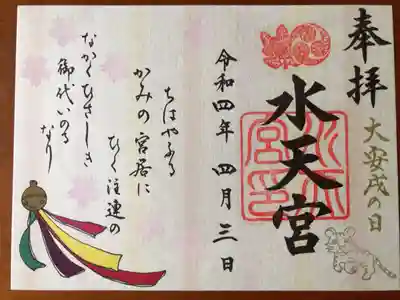 奉拝
大安戌の日
水天宮
水天宮印
令和四年 四月三日
ちはやふる
かみの宮居に
ひく注連の
なかくひさしき
御代いのる
なり